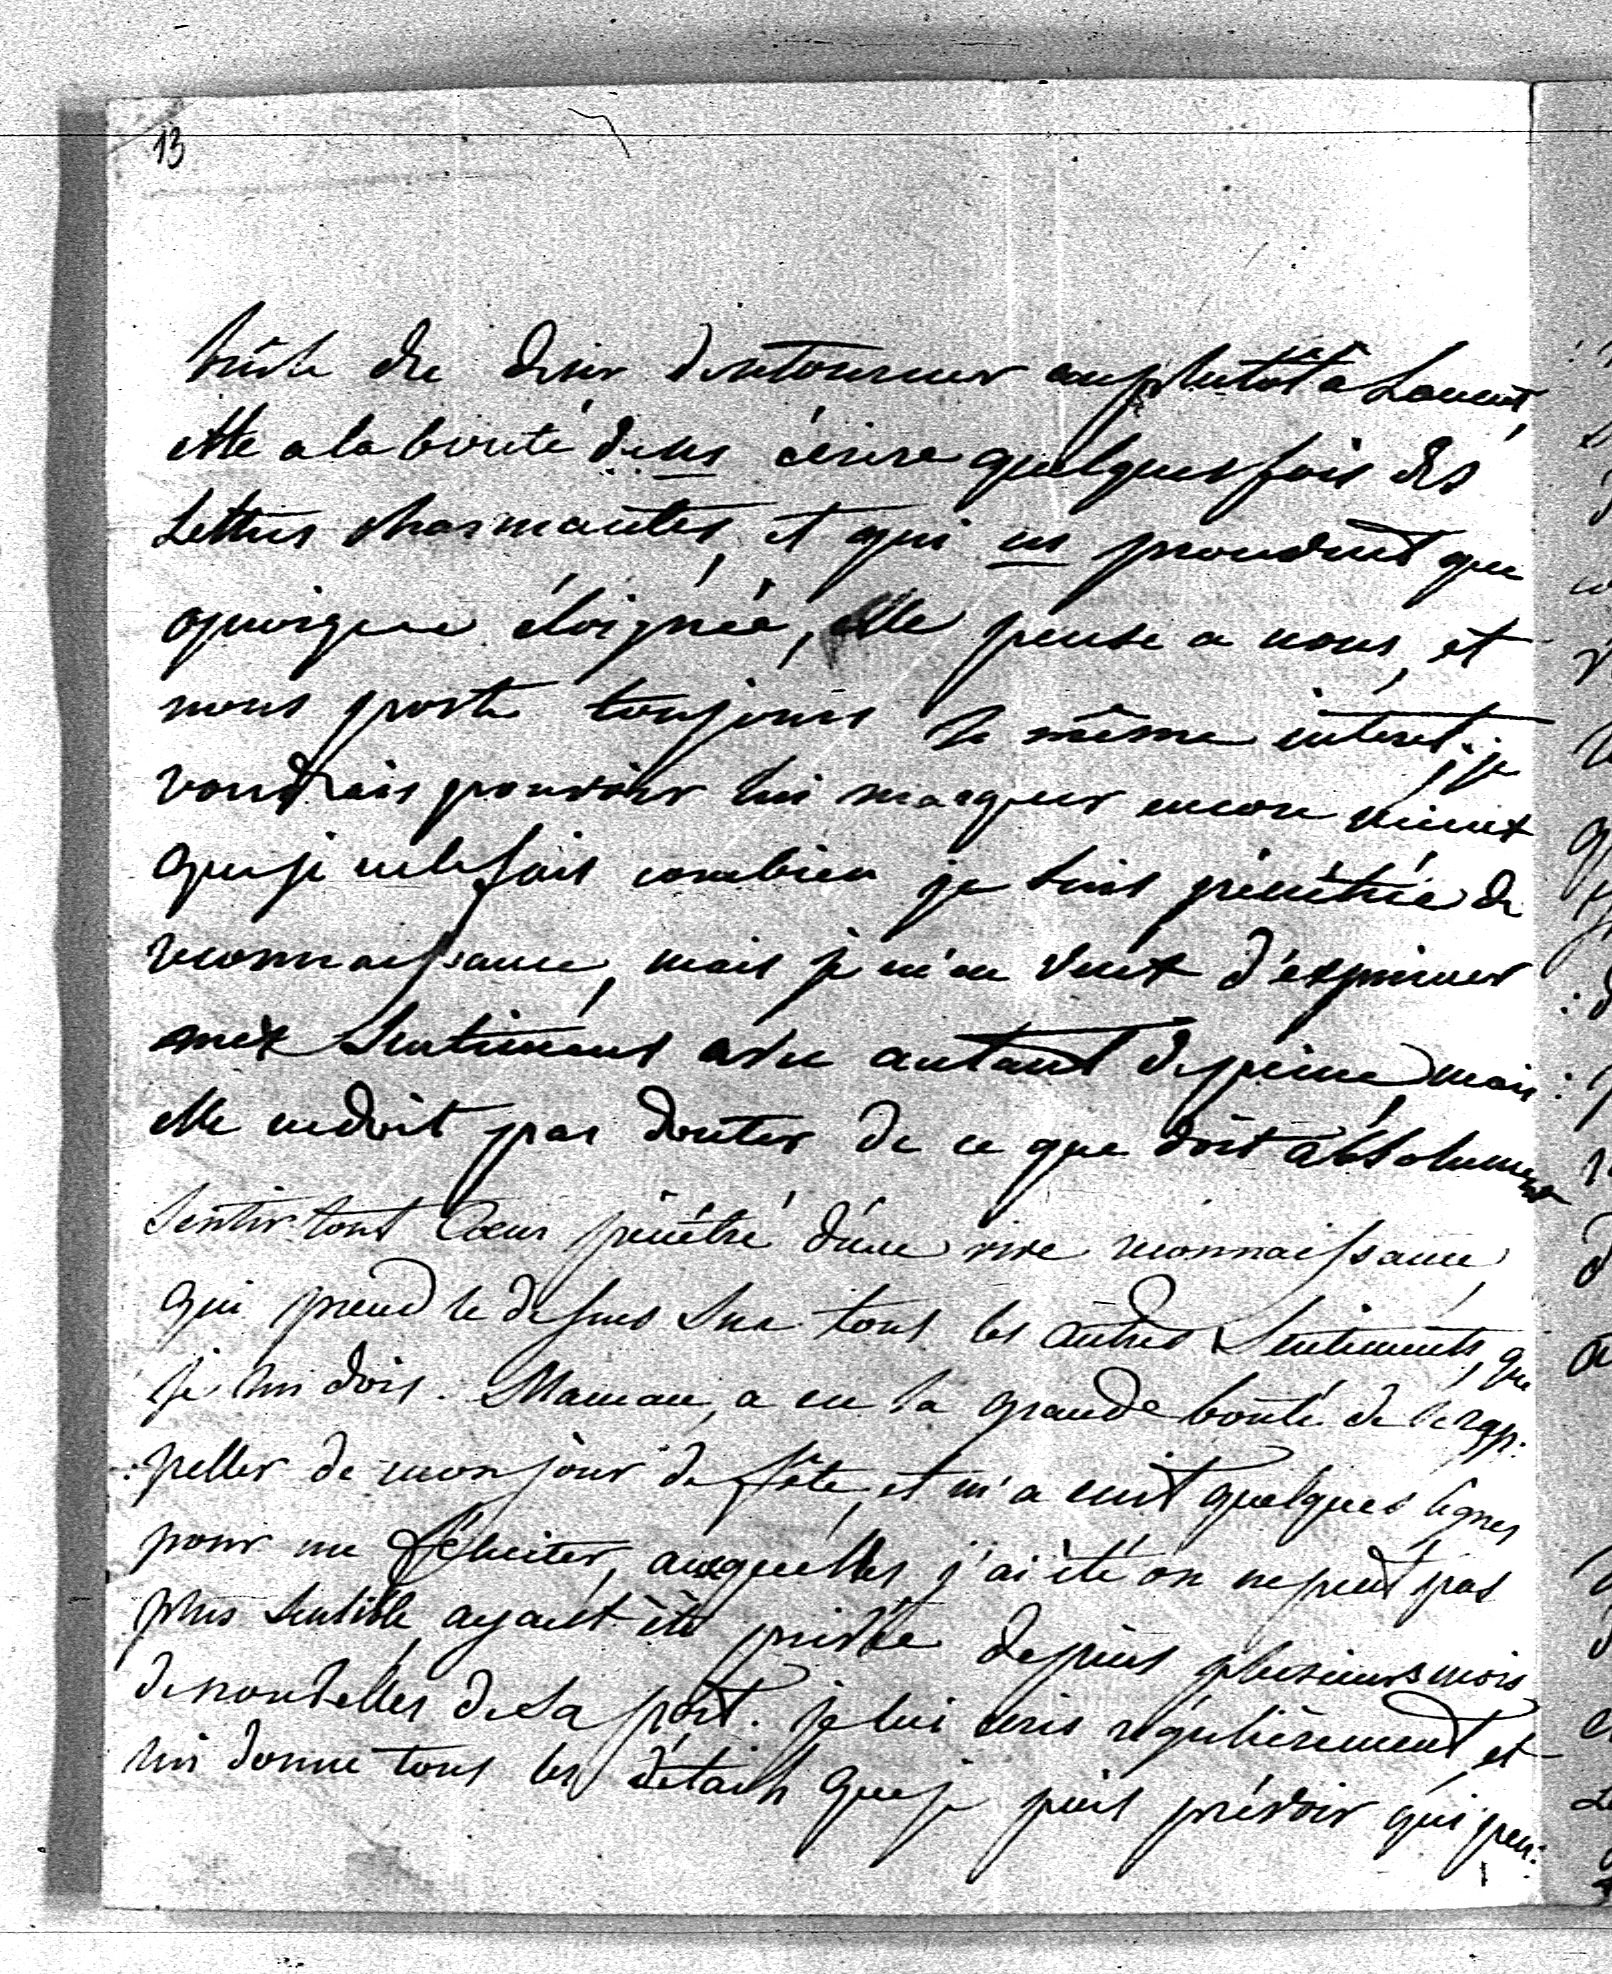 13
brûle du désir de retourner au plutôt a Lament,
elle a la bonté de ns écrire quelques fois des
Lettres charmantes, et qui ns prouvent que
quoique éloignée, elle pense a nous, et
nous porte toujours le même intéret. je
voudrais pouvoir lui marquer encore mieux
que je ne le fais combien je suis pénétrée de
reconnaissance, mais je m'en veux d'exprimer
mes Sentiments avec autant de peine, mais
elle ne doit pas douter de ce que doit absolument
Sentir tout Coeur pénétré d'une vive reconnaissance,
qui prend le dessus Sur tous les autres Sentiments, que
je lui dois. Maman, a eu la grande bonté de se rap:
:peller de mon jour de fête, et m'a écrit quelques lignes
pour me féliciter, auxquelles j'ai été on ne peut pas
plus Sensible, ayant été privée depuis plusieurs mois
de nouvelles de Sa part. je lui écris régulièrement, et
lui donne tous les détails que je puis prévoir qui peu: